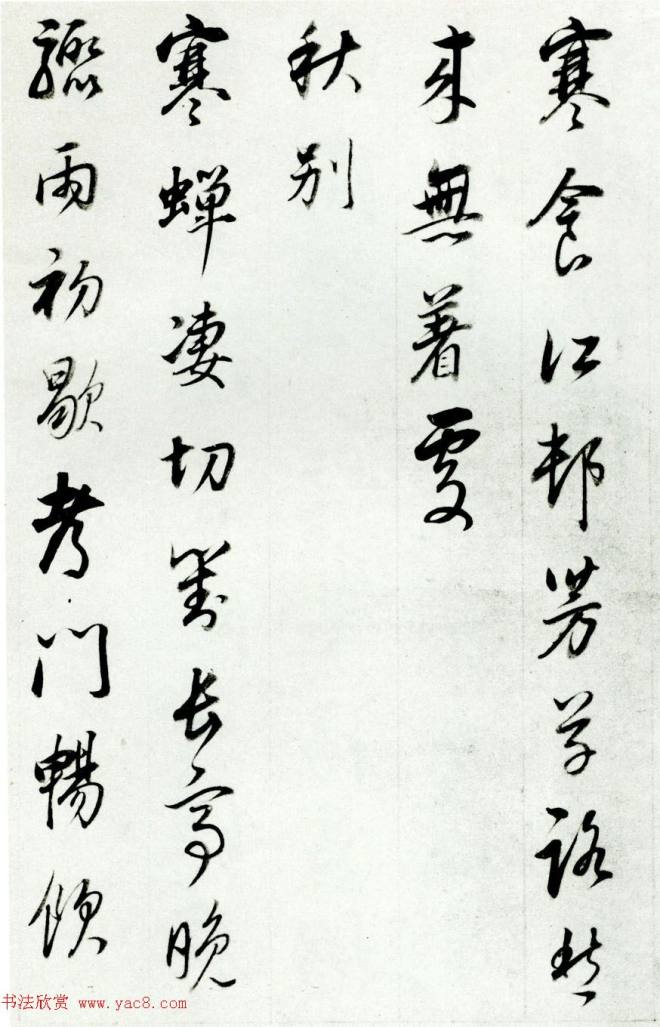 寒食江邨芳草路愁
來無著處
秋別
寒蟬凄切對長亭晚
驟雨初歇都門暢飲
书法欣赏 www.yac8.com